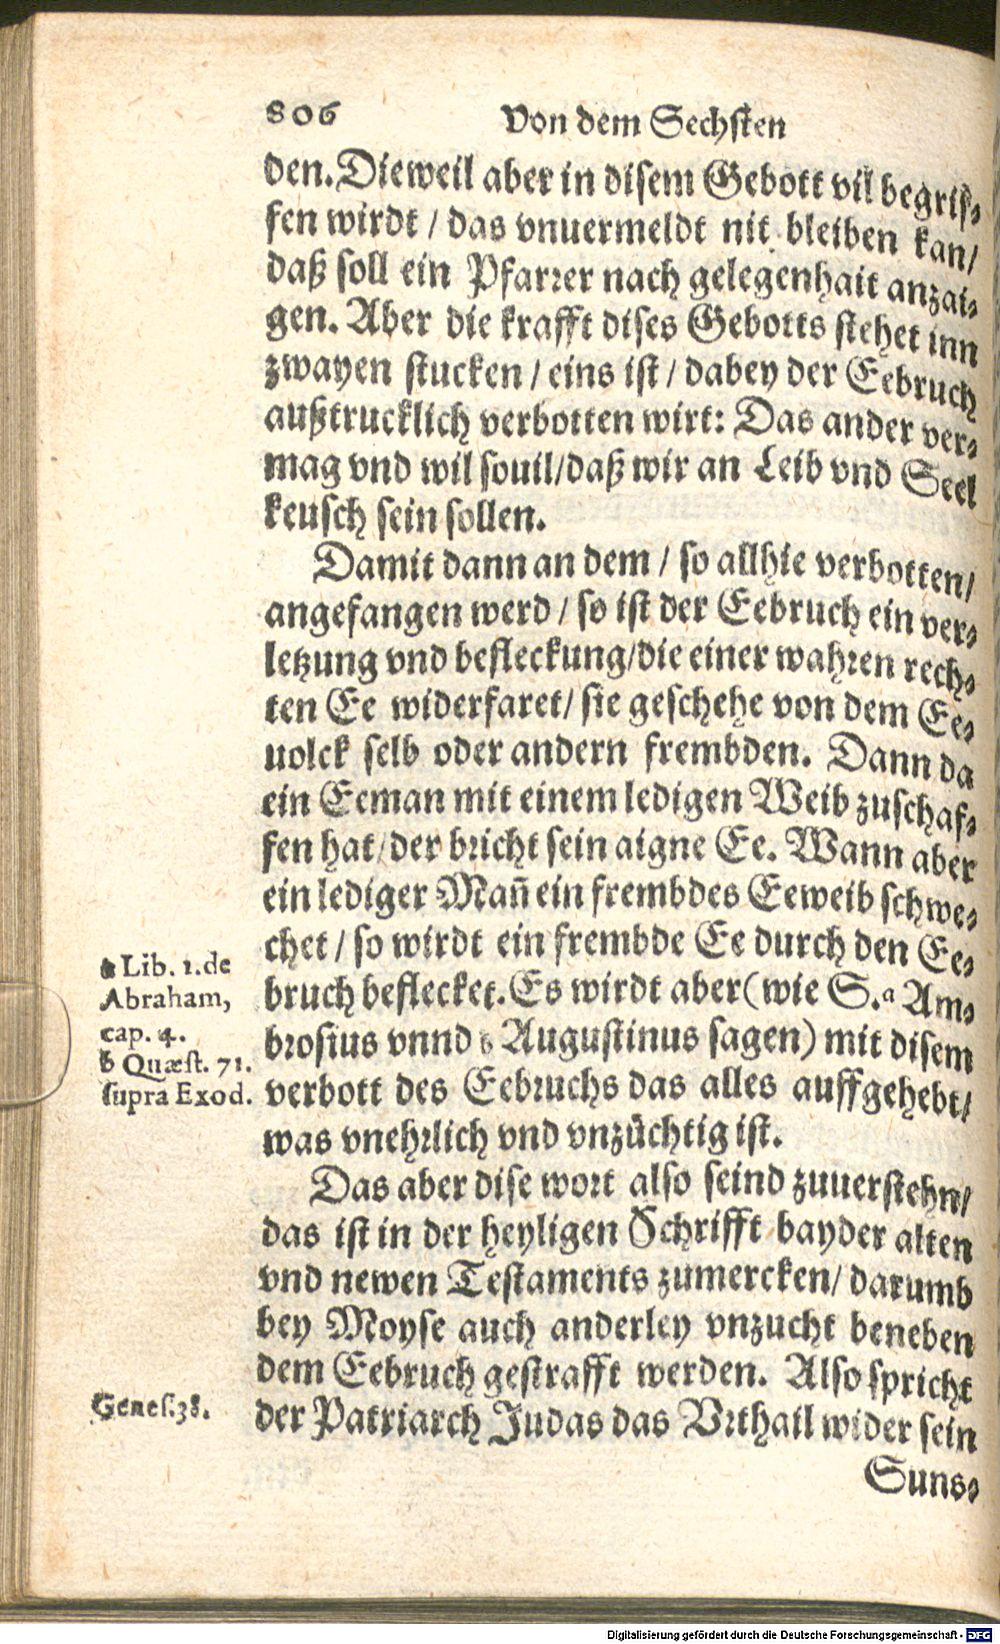 806 Von dem Sechsten
den. Dieweil aber in disem Gebott vil begrif⸗
fen wirdt / das vnuermeldt nit bleiben kan/
daß soll ein Pfarrer nach gelegenhait anzai⸗
gen. Aber die krafft dises Gebotts stehet inn
zwayen stucken / eins ist / dabey der Eebruch
außtrucklich verbotten wirt: Das ander ver⸗
mag vnd wil souil/daß wir an Leib vnd Seel
keusch sein sollen.
Damit dann an dem / so allhie verbotten/
angefangen werd / so ist der Eebruch ein ver⸗
letzung vnd befleckung/die einer wahren rech⸗
ten Ee widerfaret/ sie geschehe von dem Ee⸗
uolck selb oder andern frembden. Dann da
ein Eeman mit einem ledigen Weib zuschaf⸗
fen hat/der bricht sein aigne Ee. Wann aber
ein lediger Mañ ein frembdes Eeweib schwe⸗
chet / so wirdt ein frembde Ee durch den Ee⸗
bruch beflecket. Es wirdt aber (wie S. a Am⸗
brosius vnnd b Augustinus sagen) mit disem
verbott des Eebruchs das alles auffgehebt/
was vnehrlich vnd vnzüchtig ist.
a Lib. 1. de
Abraham,
cap. 4.
b Quæst. 71.
supra Exod.
Das aber dise wort also seind zuuerstehn/
das ist in der heyligen Schrifft bayder alten
vnd newen Testaments zumercken/ darumb
bey Moyse auch anderley vnzucht beneben
dem Eebruch gestrafft werden. Also spricht
der Patriarch Judas das Vrthail wider sein
Genes. 38.
Suns⸗
Digitalisierung gefördert durch die Deutsche Forschungsgemeinschaft - DFG